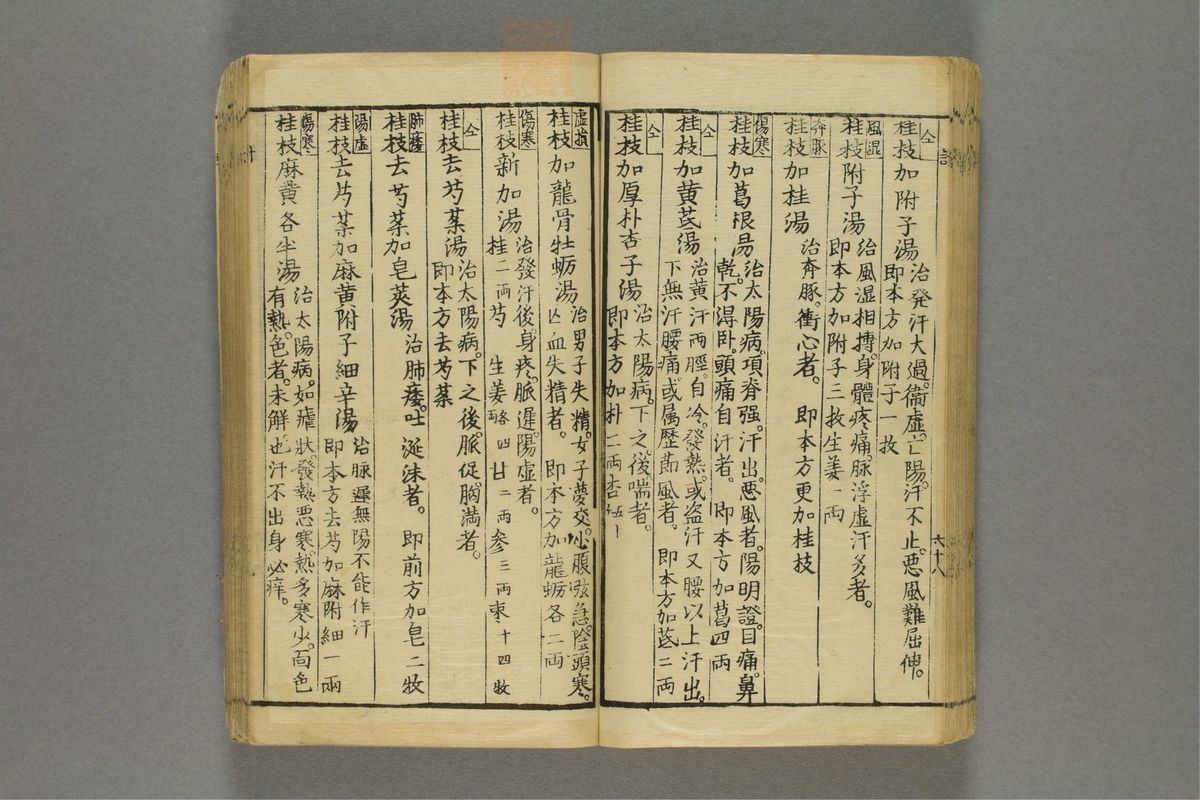 仝
桂枝加附子湯
治発汗大過。衛虚。亡陽。汗不止。悪風難屈伸。
即本方加附子一枚
六十八
風湿
桂枝附子湯
治風湿相摶。身體疼痛。脉浮虚汗多者。
即本方加附子三枚生姜一両
奔豚
桂枝加桂湯
治奔豚。衝心者。 即本方更加桂枝
傷寒
桂枝加葛根昜
治太陽病。項脊强。汗出。悪風者。陽明證。目痛。鼻
乾。不淂卧。頭痛自汗者。 即本方加葛四両
仝
桂枝加黄芪湯
治黄汗両脛。自冷。發熱。或盗汗又腰以上汗出。
下無汗腰痛。或属歴莭風者。 即本方加芪二両
仝
桂枝加厚朴杏子湯
治太陽病。下之。後喘者。
即本方加朴二両杏
虚損
桂枝加龍骨牡蛎湯
治男子失精。女子夢交。小腹弦急。陰頭寒。
亡血失精者。 即本方加龍蛎各二両
傷寒
桂枝新加湯
治發汗後。身疼。脈遅。陽虚者。
桂二両芍生姜各四両甘二両参三両棗十四牧
仝
桂枝去芍薬湯
治太陽病。下之後。脈促。胸満者。
即本方去芍薬
肺痿
桂枝去芍薬加皂莢湯
治肺痿。吐涎沫者。 即前方加皂二牧
陽虚
桂枝去芍薬加麻黄附子細辛湯
治脉遲無陽不能作汗
即本方去芍加麻附細一兩
傷寒
桂枝麻黄各半湯
治太陽病。如瘧狀。發熱悪寒。熱多寒少。面色
有熱。色者。未解也。汗不出身必痒。